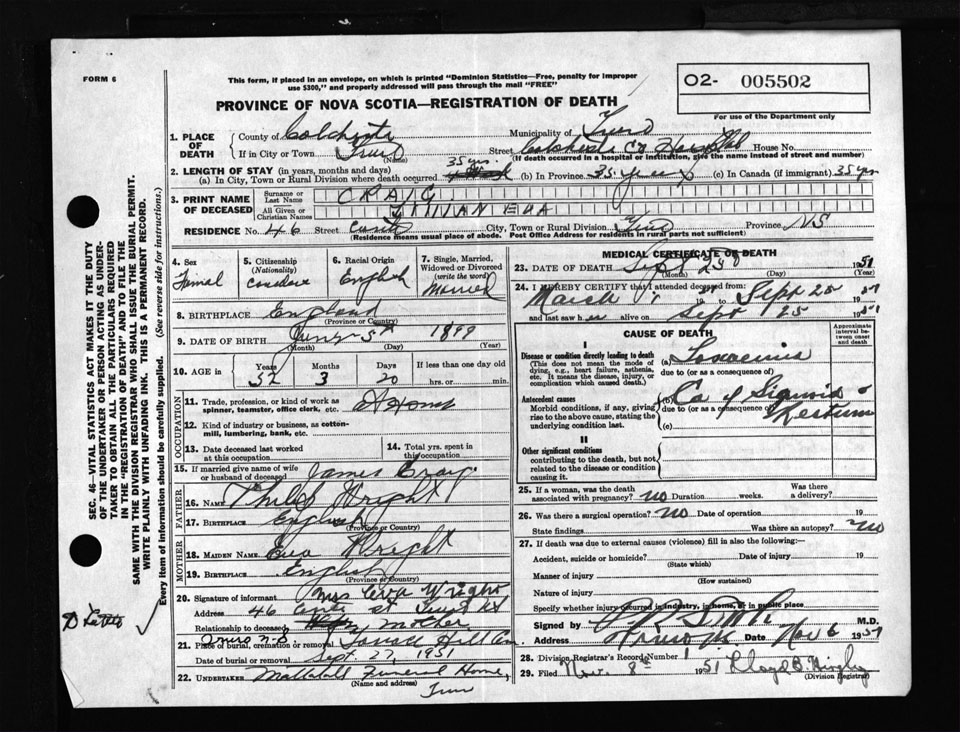 FORM 6
This form, if placed in an envelope, on which is printed "Dominion Statistics—Free, penalty for improper
use $300," and properly addressed will pass through the mail "FREE"
O2- 005502
For use of the Department only
PROVINCE OF NOVA SCOTIA—REGISTRATION OF DEATH
1. PLACE OF DEATH
County of Colchester Municipality of Truro
If in City or Town Truro (Name) Street Colchester Co Hospital House No.
(If death occurred in a hospital or institution, give the name instead of street and number)
2. LENGTH OF STAY (in years, months and days)
(a) In City, Town or Rural Division where death occurred 35 yrs. (b) In Province 35 years (c) In Canada (if immigrant) 35 yrs
3. PRINT NAME OF DECEASED
Surname or Last Name CRAIG
All Given or Christian Names EVA
RESIDENCE No. 46 Street City, Town or Rural Division Truro Province NS
(Residence means usual place of abode. Post Office Address for residents in rural parts not sufficient)
4. Sex
Femal
5. Citizenship (Nationality)
6. Racial Origin
English
7. Single, Married, Widowed or Divorced (write the word)
Married
8. BIRTHPLACE England
(Province or Country)
9. DATE OF BIRTH June 5th 1899
(Month) (Day) (Year)
10. AGE in Years 52 Months 3 Days 20 If less than one day old hrs. or min.
OCCUPATION
11. Trade, profession, or kind of work as spinner, teamster, office clerk, etc. At Home
12. Kind of industry or business, as cotton-mill, lumbering, bank, etc.
13. Date deceased last worked at this occupation
14. Total yrs. spent in this occupation
15. If married give name of wife or husband of deceased James Craig
FATHER
16. NAME Philip Wright
17. BIRTHPLACE English
(Province or Country)
MOTHER
18. MAIDEN NAME Eva Wright
19. BIRTHPLACE English
(Province or Country)
20. Signature of informant Mrs Eva Wright
Address 46 st Truro NS
Relationship to deceased Mother
21. Place of burial, cremation or removal Truro N.S.
Date of burial or removal Sept. 27, 1951
22. UNDERTAKER Mattatall Funeral Home,
(Name and address) Truro
MEDICAL CERTIFICATE OF DEATH
23. DATE OF DEATH Sept 1951
(Month) (Day) (Year)
24. I HEREBY CERTIFY that I attended deceased from:
March 1 1951 to Sept 25 1951
and last saw her alive on Sept 25 1951
CAUSE OF DEATH
Approximate interval between onset and death
Disease or condition directly leading to death
(This does not mean the mode of dying, e.g., heart failure, asthenia, etc. It means the disease, injury, or complication which caused death.)
(a) Toxaemia
due to (or as a consequence of)
Antecedent causes
Morbid conditions, if any, giving rise to the above cause, stating the underlying condition last.
(b) Ca of Sigmoid &
due to (or as a consequence of) Rectum
(c)
Other significant conditions
contributing to the death, but not related to the disease or condition causing it.
25. If a woman, was the death associated with pregnancy? no Duration weeks. Was there a delivery?
26. Was there a surgical operation? no Date of operation 19
State findings Was there an autopsy? no
27. If death was due to external causes (violence) fill in also the following:—
Accident, suicide or homicide? Date of injury 19
(State which)
Manner of injury
(How sustained)
Nature of injury
Specify whether injury occurred in industry, in home, or in public place
Signed by M.D.
Address Truro NS Date Nov 6 1951
28. Division Registrar's Record Number
29. Filed Nov. 8th 1951 Lloyd B.
(Division Registrar)
SEC. 46—VITAL STATISTICS ACT MAKES IT THE DUTY
OF THE UNDERTAKER OR PERSON ACTING AS UNDER-
TAKER TO OBTAIN ALL THE PARTICULARS REQUIRED
IN THE "REGISTRATION OF DEATH" AND TO FILE THE
SAME WITH THE DIVISION REGISTRAR WHO SHALL ISSUE THE BURIAL PERMIT.
WRITE PLAINLY WITH UNFADING INK. THIS IS A PERMANENT RECORD.
Every item of information should be carefully supplied. (See reverse side for instructions.)